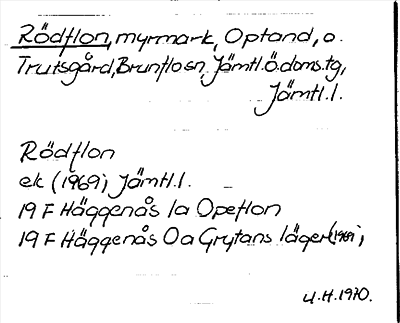 Rödflon, myrmark, Optand, o.
Trutsgård, Brunflo sn, Jämtl.ö.doms.tg,
Jämtl.l.
Rödflon
ek (1969) Jämtl.l.
19 F Häggenås 1a Opeflon
19 F Häggenås 0a Grytans läger (1969)
U.H. 1970.